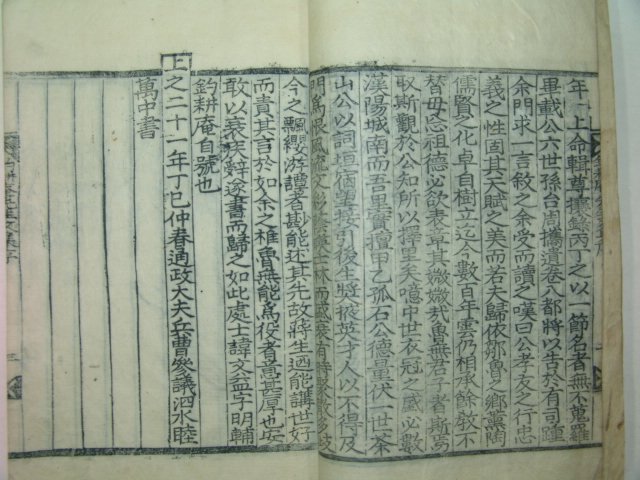 年上命輯尊攘錄丙丁之以一節名者無不蒐羅
畢載公六世孫台周攜遺卷入都將以告於有司踵
余門求一言敘之余受而讀之嘆曰公孝友之行忠
義之性固其天賦之美而若夫歸依鄒魯之鄉薰陶
儒賢之化卓自樹立迄今數百年雲仍相承餘教不
替毋忝祖德必欲表章其微媺哉魯無君子者斯焉
取斯觀於公知所以擇里矣噫中世衣冠之盛必數
漢陽城南而吾里實擅甲乙孤石公德量伏一世茶
山公以詞垣宿望接引後生奬掖英才人以不得及
門為恨風流文彩士林而盛衰有時聚散多
今之飄纓游讀者尠能述其先故蔣生迺能講世好
而責其言於如余之椎魯無能為役者意甚厚也安
敢以衰朽辭遂書而歸之如此處士諱文益字明輔
釣耕庵自號也
上之二十一年丁巳仲春通政大夫兵曹參議泗水睦
萬中書